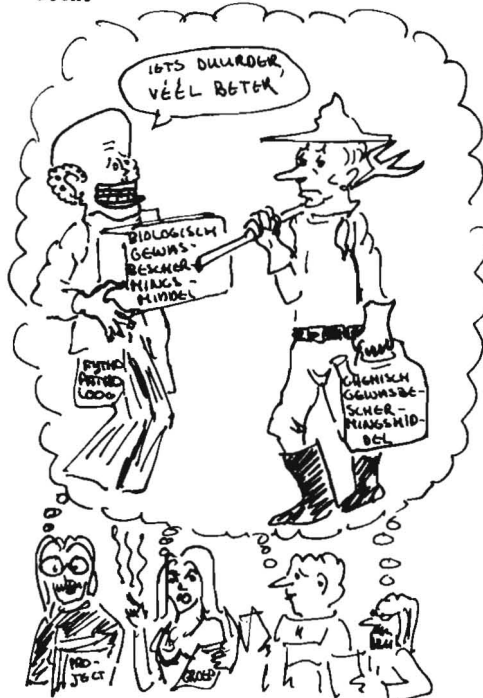 IETS DUURDER,
VÉÉL BETER
BIOLOGISCH
GEWAS-
BESCHER-
MINGS-
MIDDEL
FYTHO
PATHO
LOOG
CHEMISCH
GEWASBE-
SCHER-
MINGSMID-
DEL
PRO-
JECT
GROEP